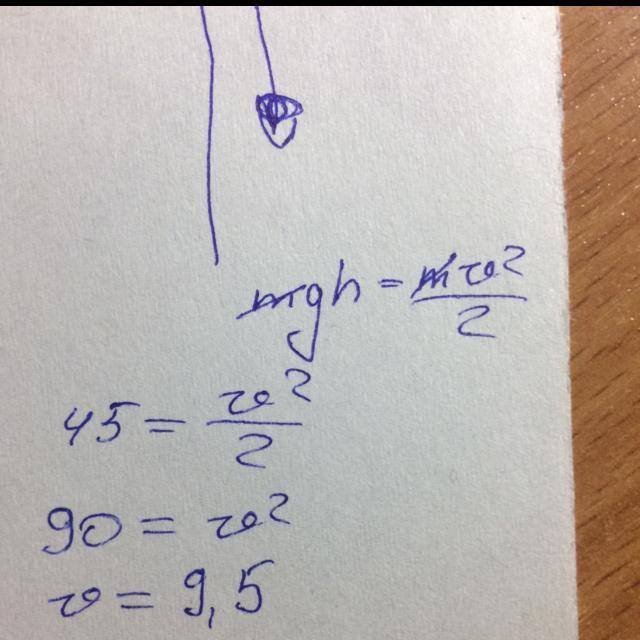 mgh = mv²/2
45 = v²/2
90 = v²
v = 9,5